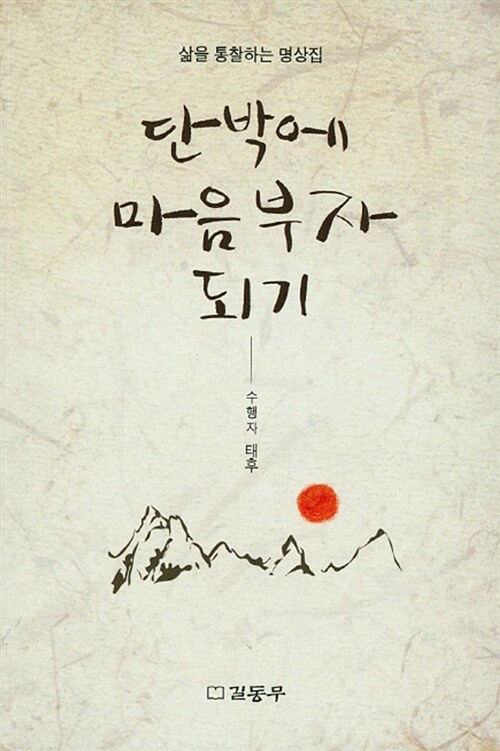 삶을 통찰하는 명상집
단박에
마음부자
되기
수행자 태후
길동무